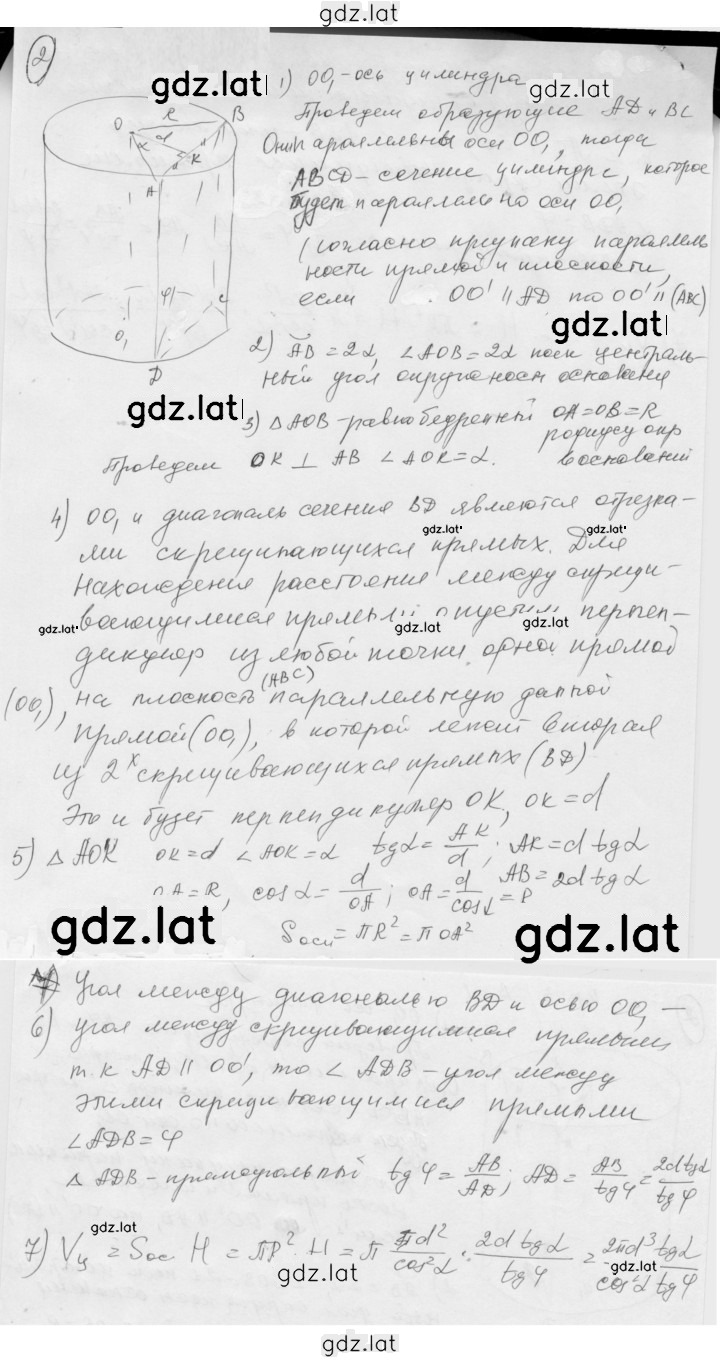 gdz.lat
2
gdz.lat
1) OO₁-ось цилиндра
Проведем образующие AD и BC
Они параллельны оси OO₁, тогда
ABCD - сечение цилиндра, которое
будет параллельно оси OO₁
(согласно признаку параллель-
ности прямой и плоскости,
если OO' || AD то OO' || (ABC)
gdz.lat
O R B
d
α K
A
φ C
O₁
D
2) AB = 2α, ∠AOB = 2α как централь-
ный угол окружности основания
gdz.lat
3) △AOB - равнобедренный OA = OB = R
радиусу окр
Проведем OK ⊥ AB ∠AOK = α. в основании
4) OO₁ и диагональ сечения BD являются отрезка-
gdz.lat gdz.lat
ми скрещивающихся прямых. Для
нахождения расстояния между скрещи-
gdz.lat вающимися прямыми опустим перпен-
gdz.lat gdz.lat
дикуляр из любой точки одной прямой
(OO₁), на плоскость (ABC) параллельную данной
прямой (OO₁), в которой лежит вторая
из 2х скрещивающихся прямых (BD)
Это и будет перпендикуляр OK, OK = d
5) △ AOK OK = d ∠AOK = α tgα = AK/d ; AK = d tgα
OA = R, cos α = d/OA ; OA = d/cosα = R AB = 2d tgα
gdz.lat Sосн = πR² = π OA² gdz.lat
Угол между диагональю BD и осью OO₁ -
6) угол между скрещивающимися прямыми
т.к AD || OO', то ∠ ADB - угол между
этими скрещивающимися прямыми
∠ADB = φ
△ ADB - прямоугольный tgφ = AB/AD ; AD = AB/tgφ = 2d tgα/tgφ
gdz.lat
7) Vц = Sосн H = πR² · H = π d²/cos²α · 2d tgα/tgφ = 2πd³ tgα/cos²α tgφ
gdz.lat gdz.lat
gdz.lat